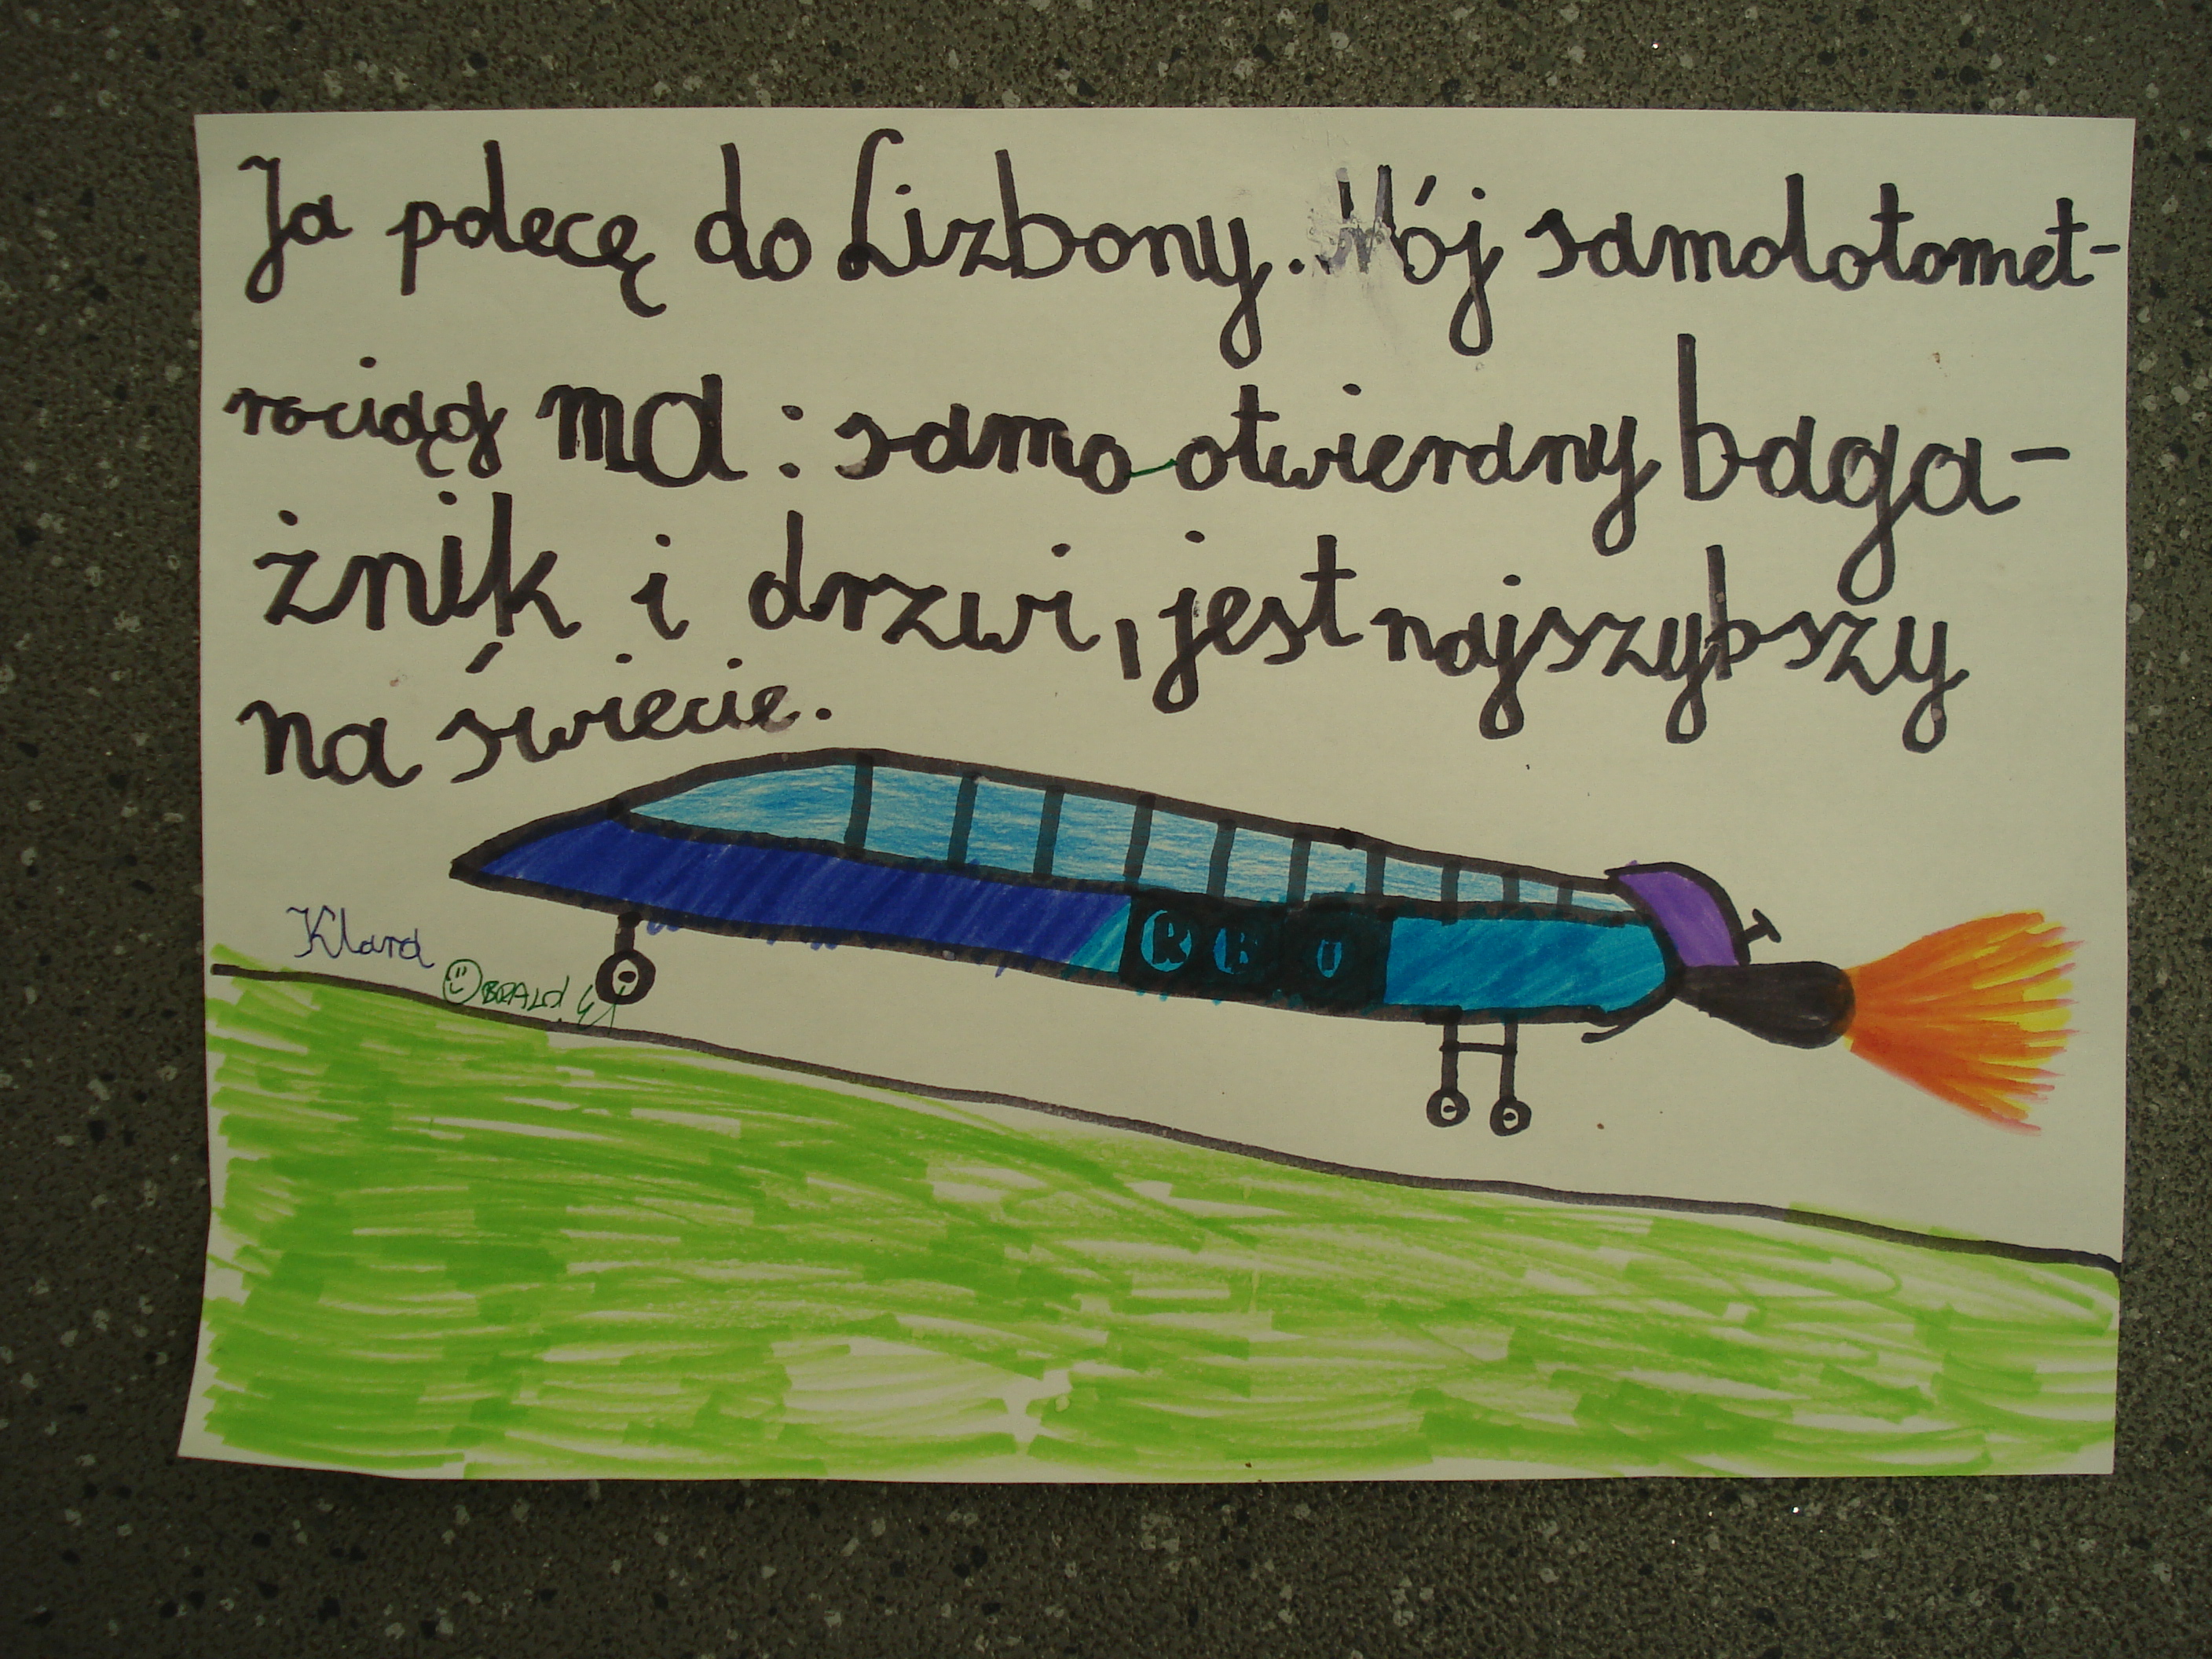 Ja polecę do Lizbony. Mój samolotomet-
rociąg ma: samo otwierany baga-
żnik i drzwi, jest najszybszy
na świecie.
Klara